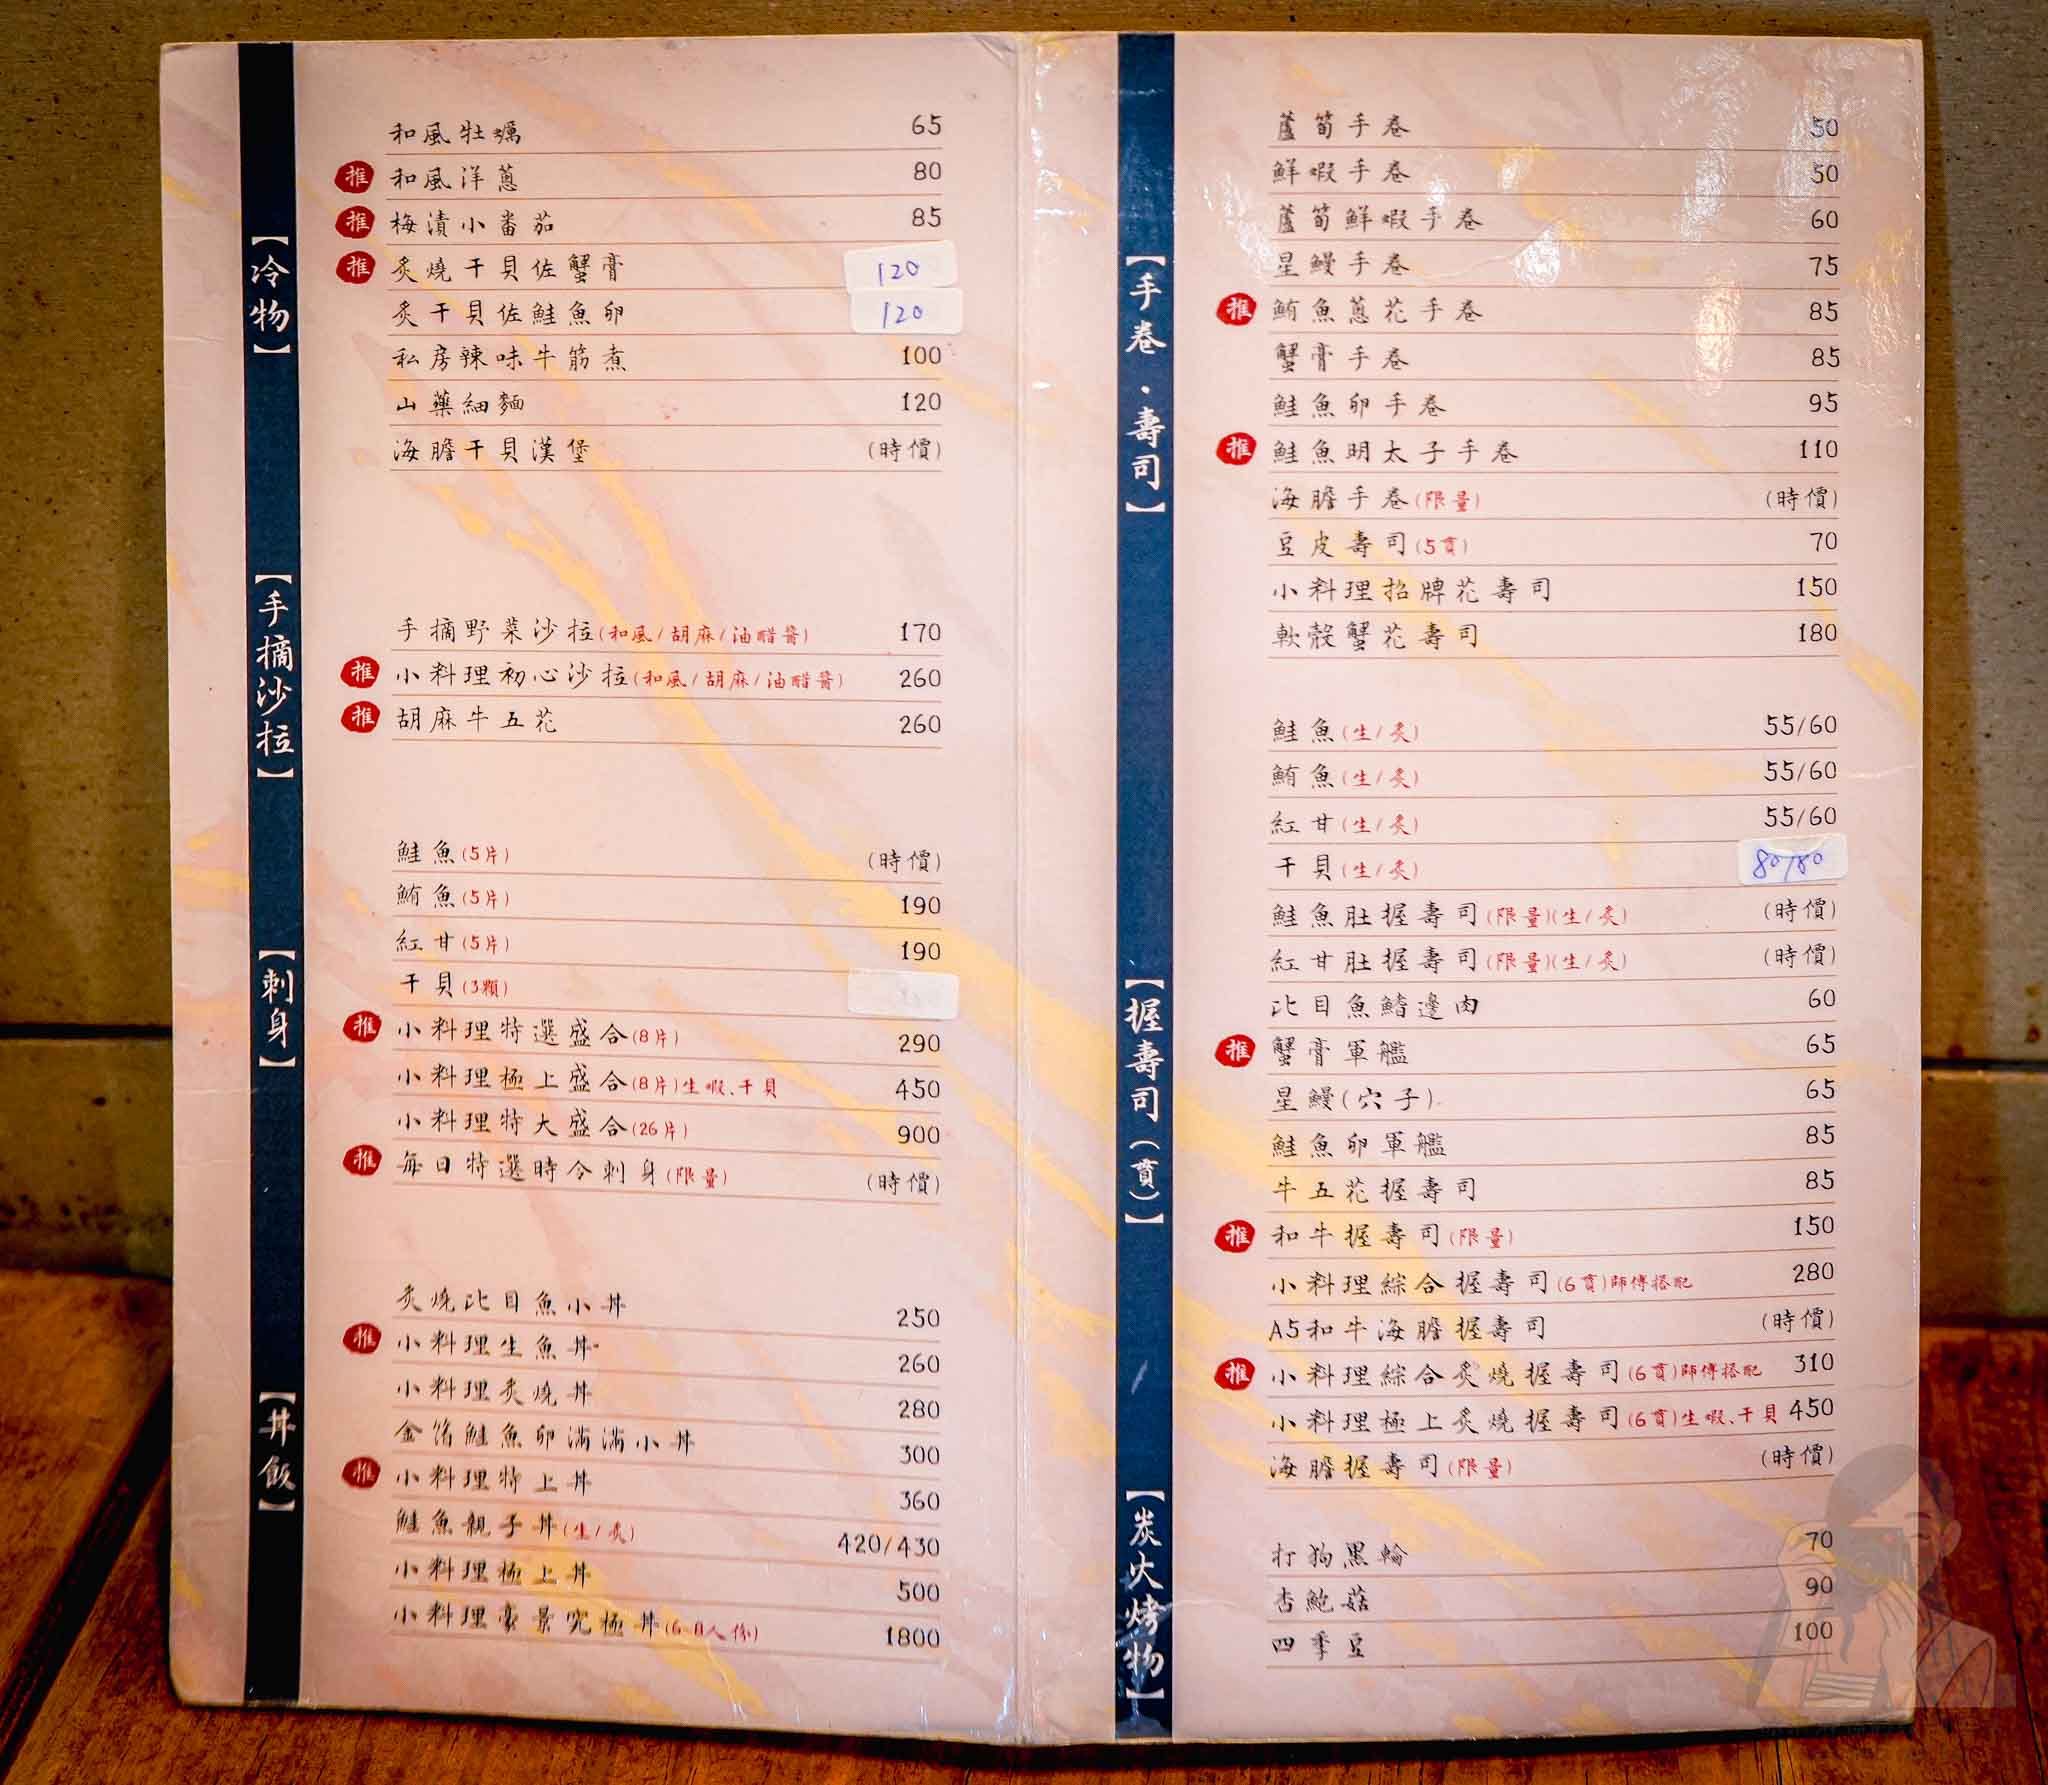 【冷物】
和風牡蠣 65
推 和風洋蔥 80
推 梅漬小番茄 85
推 炙燒干貝佐蟹膏 120
炙干貝佐鮭魚卵 120
私房辣味牛筋煮 100
山藥細麵 120
海膽干貝漢堡 (時價)
【手摘沙拉】
手摘野菜沙拉(和風/胡麻/油醋醬) 170
推 小料理初心沙拉(和風/胡麻/油醋醬) 260
推 胡麻牛五花 260
【刺身】
鮭魚(5片) (時價)
鮪魚(5片) 190
紅甘(5片) 190
干貝(3顆)
推 小料理特選盛合(8片) 290
小料理極上盛合(8片)生蝦、干貝 450
小料理特大盛合(26片) 900
推 每日特選時令刺身(限量) (時價)
【丼飯】
炙燒比目魚小丼 250
推 小料理生魚丼 260
小料理炙燒丼 280
金箔鮭魚卵滿滿小丼 300
推 小料理特上丼 360
鮭魚親子丼(生/炙) 420/430
小料理極上丼 500
小料理豪景究極丼 1800
【手卷.壽司】
蘆筍手卷 50
鮮蝦手卷 50
蘆筍鮮蝦手卷 60
星鰻手卷 75
推 鮪魚蔥花手卷 85
蟹膏手卷 85
鮭魚卵手卷 95
推 鮭魚明太子手卷 110
海膽手卷(限量) (時價)
豆皮壽司(5貫) 70
小料理招牌花壽司 150
軟殼蟹花壽司 180
【握壽司(貫)】
鮭魚(生/炙) 55/60
鮪魚(生/炙) 55/60
紅甘(生/炙) 55/60
干貝(生/炙) 80/80
鮭魚肚握壽司(限量)(生/炙) (時價)
紅甘肚握壽司(限量)(生/炙) (時價)
比目魚鰭邊肉 60
推 蟹膏軍艦 65
星鰻(穴子) 65
鮭魚卵軍艦 85
牛五花握壽司 85
推 和牛握壽司(限量) 150
小料理綜合握壽司(6貫)師傅搭配 280
A5和牛海膽握壽司 (時價)
推 小料理綜合炙燒握壽司(6貫)師傅搭配 310
小料理極上炙燒握壽司(6貫)生蝦、干貝 450
海膽握壽司(限量) (時價)
【炭火烤物】
打狗黑輪 70
杏鮑菇 90
四季豆 100